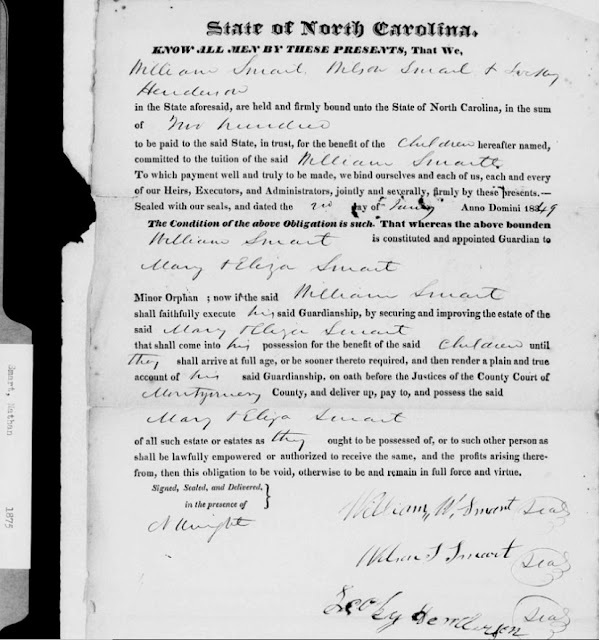 State of North Carolina.
KNOW ALL MEN BY THESE PRESENTS, That We,
William Smart, Wilson Smart &
Henderson
in the State aforesaid, are held and firmly bound unto the State of North Carolina, in the sum
of Two hundred
to be paid to the said State, in trust, for the benefit of the Children hereafter named,
committed to the tuition of the said William Smart
To which payment well and truly to be made, we bind ourselves and each of us, each and every
of our Heirs, Executors, and Administrators, jointly and severally, firmly by these presents.—
Sealed with our seals, and dated the day of Anno Domini 18
The Condition of the above Obligation is such, That whereas the above bounden
William Smart is constituted and appointed Guardian to
Mary & Eliza Smart
Minor Orphan ; now if the said William Smart
shall faithfully execute his said Guardianship, by securing and improving the estate of the
said Mary & Eliza Smart
that shall come into his possession for the benefit of the said Children until
they shall arrive at full age, or be sooner thereto required, and then render a plain and true
account of his said Guardianship, on oath before the Justices of the County Court of
Montgomery County, and deliver up, pay to, and possess the said
Mary & Eliza Smart
of all such estate or estates as they ought to be possessed of, or to such other person as
shall be lawfully empowered or authorized to receive the same, and the profits arising there-
from, then this obligation to be void, otherwise to be and remain in full force and virtue.
Signed, Sealed, and Delivered,
in the presence of
William W. Smart Seal
Wilson T Smart Seal
Henderson Seal
Smart, Nathan 1875